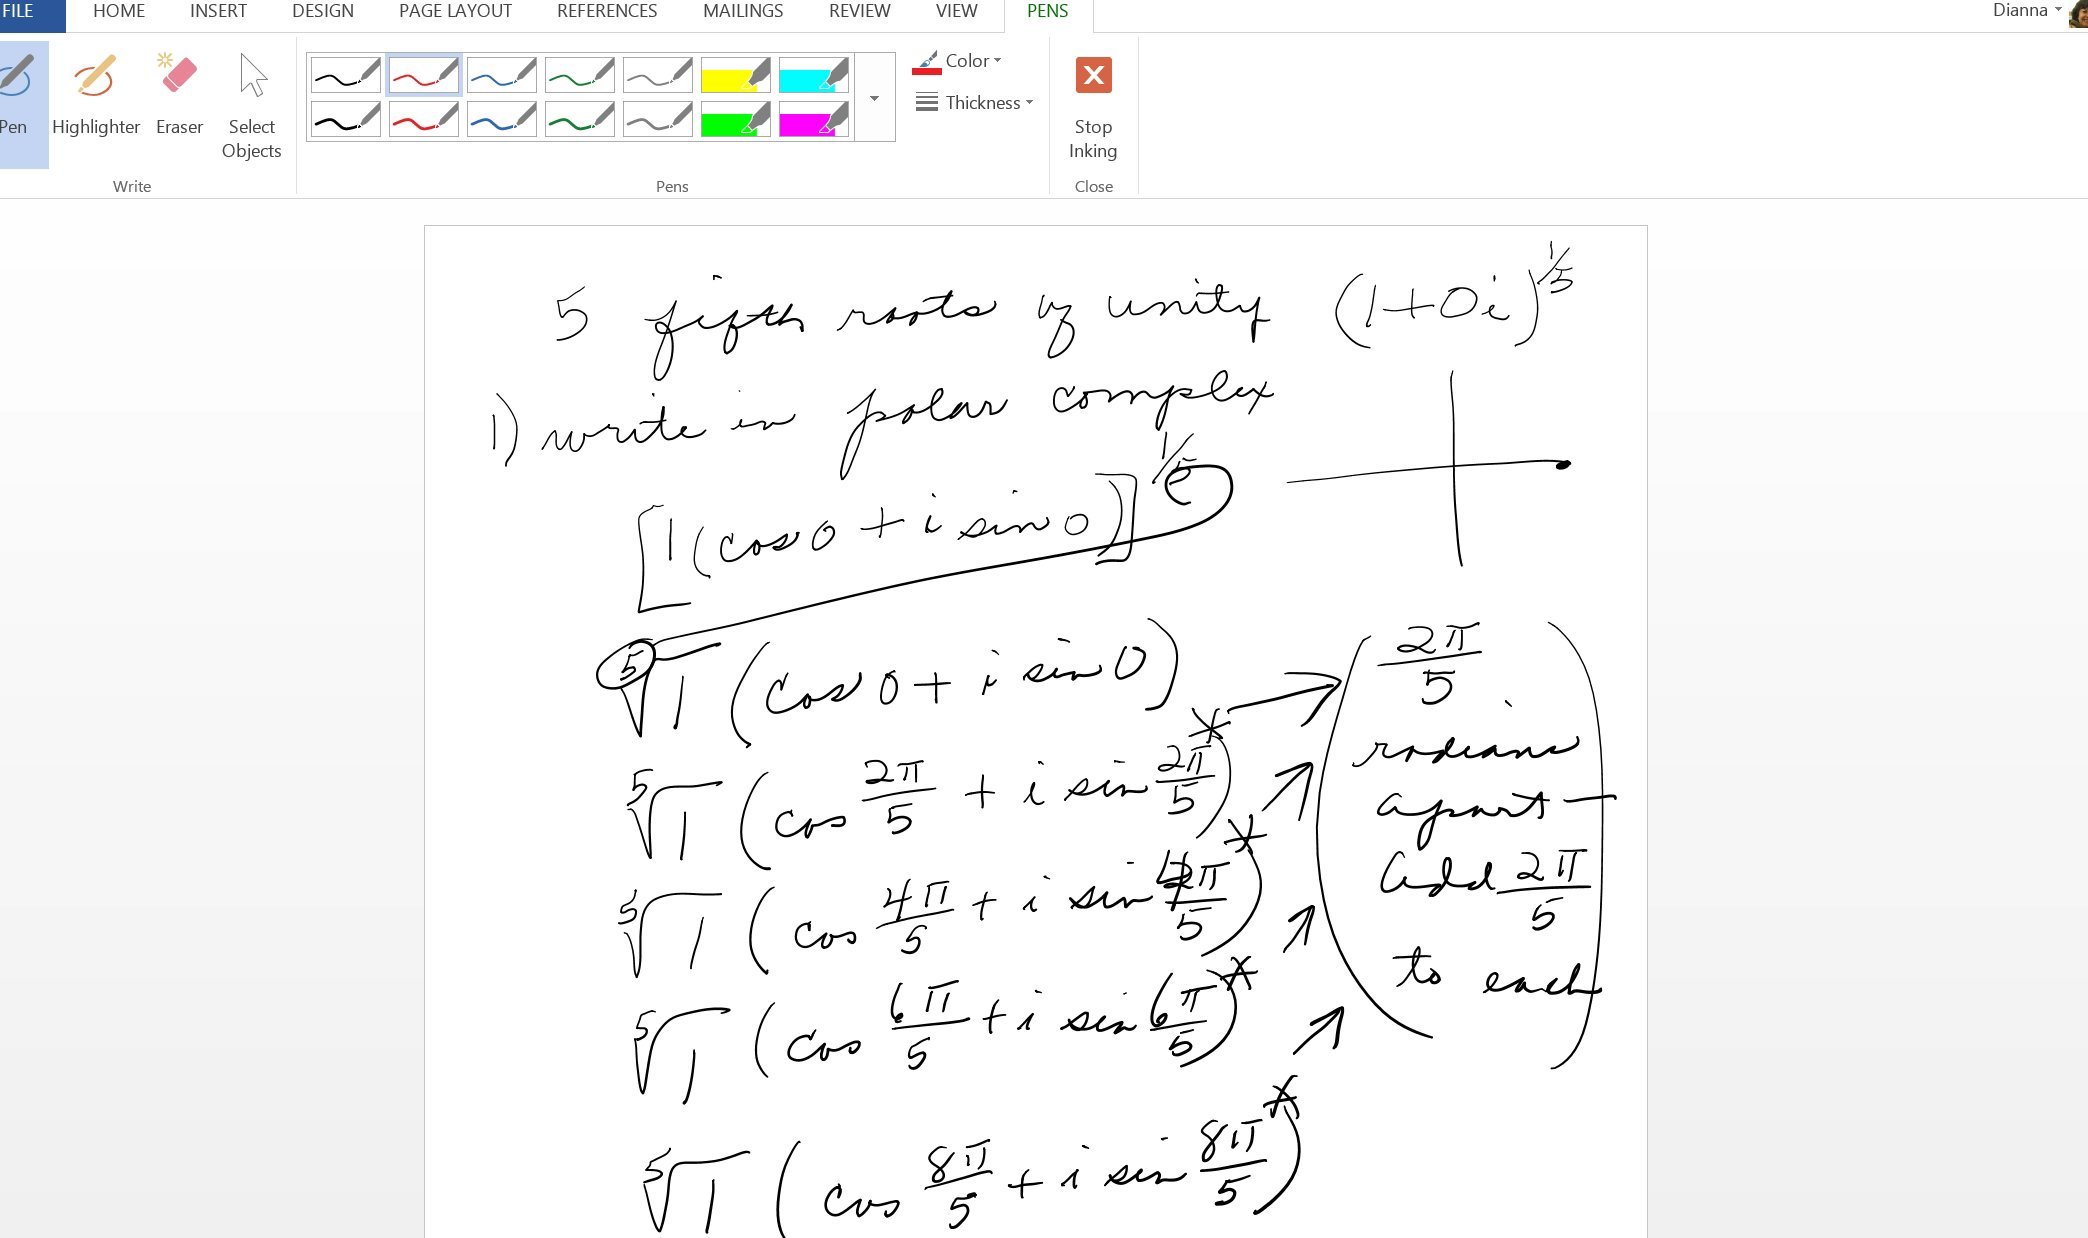 FILE HOME INSERT DESIGN PAGE LAYOUT REFERENCES MAILINGS REVIEW VIEW PENS Dianna
Pen Highlighter Eraser Select Objects
Color
Thickness
Stop Inking
Write Pens Close
5 fifth roots of unity (1+0i)^1/5
1) write in polar complex
[1(cos 0 + i sin 0)]^1/5
⁵√1 (cos 0 + i sin 0)
⁵√1 (cos 2π/5 + i sin 2π/5)*
⁵√1 (cos 4π/5 + i sin 4π/5)*
⁵√1 (cos 6π/5 + i sin 6π/5)*
⁵√1 (cos 8π/5 + i sin 8π/5)*
(2π/5
radians
apart —
add 2π/5
to each)